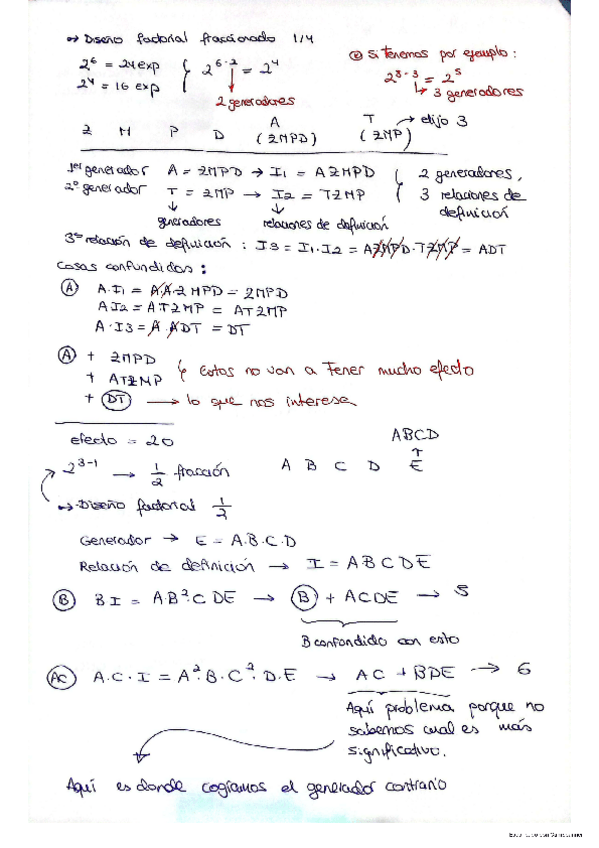 → Diseño factorial fraccionado 1/4
2⁶ = 24 exp
2⁴ = 16 exp
2⁶⁻² = 2⁴
2 generadores
Si Tenemos por ejemplo:
2⁸⁻³ = 2⁵
↳ 3 generadores
2 M P D A (2MPD) T (2MP) → elijo 3
1er generador A = 2MPD → I1 = A2MPD
2º generador T = 2MP → I2 = T2MP
2 generadores,
3 relaciones de
definición
generadores relaciones de definición
3ª relación de definición : I3 = I1·I2 = A2MPD·T2MP = ADT
Cosas confundidas:
A A·I1 = A·A·2MPD = 2MPD
A I2 = A·T2MP = AT2MP
A·I3 = A·ADT = DT
A + 2MPD
+ AT2MP
+ DT → lo que nos interesa
Estos no van a Tener mucho efecto
efecto = 20
2³⁻¹ → 1/2 fracción
ABCD
A B C D E
→ Diseño factorial 1/2
Generador → E = A·B·C·D
Relación de definición → I = ABCDE
B B I = A·B²·C DE → B + ACDE → 5
B confundido con esto
AC A·C·I = A²·B·C²·D·E → AC + BDE → 6
Aquí problema porque no
sabemos cual es más
significativo.
Aquí es donde cogíamos el generador contrario